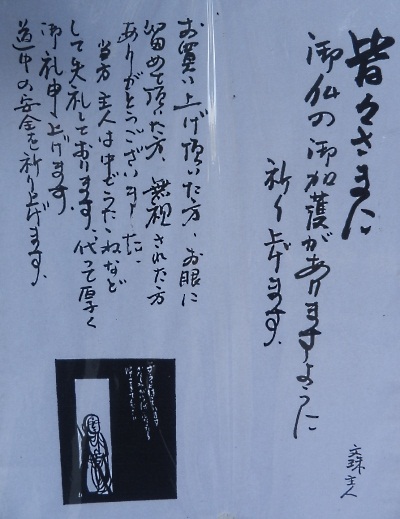 皆々さまに
御仏の御加護がありますように
祈り上げます。
文珠主人
お買い上げ頂いた方、お眼に
留めて頂いた方、無視された方
ありがとうございました。
当方主人は中でうたゝねなど
して失礼しております。代って厚く
御礼申上げます。
道中の安全を祈り上げます。